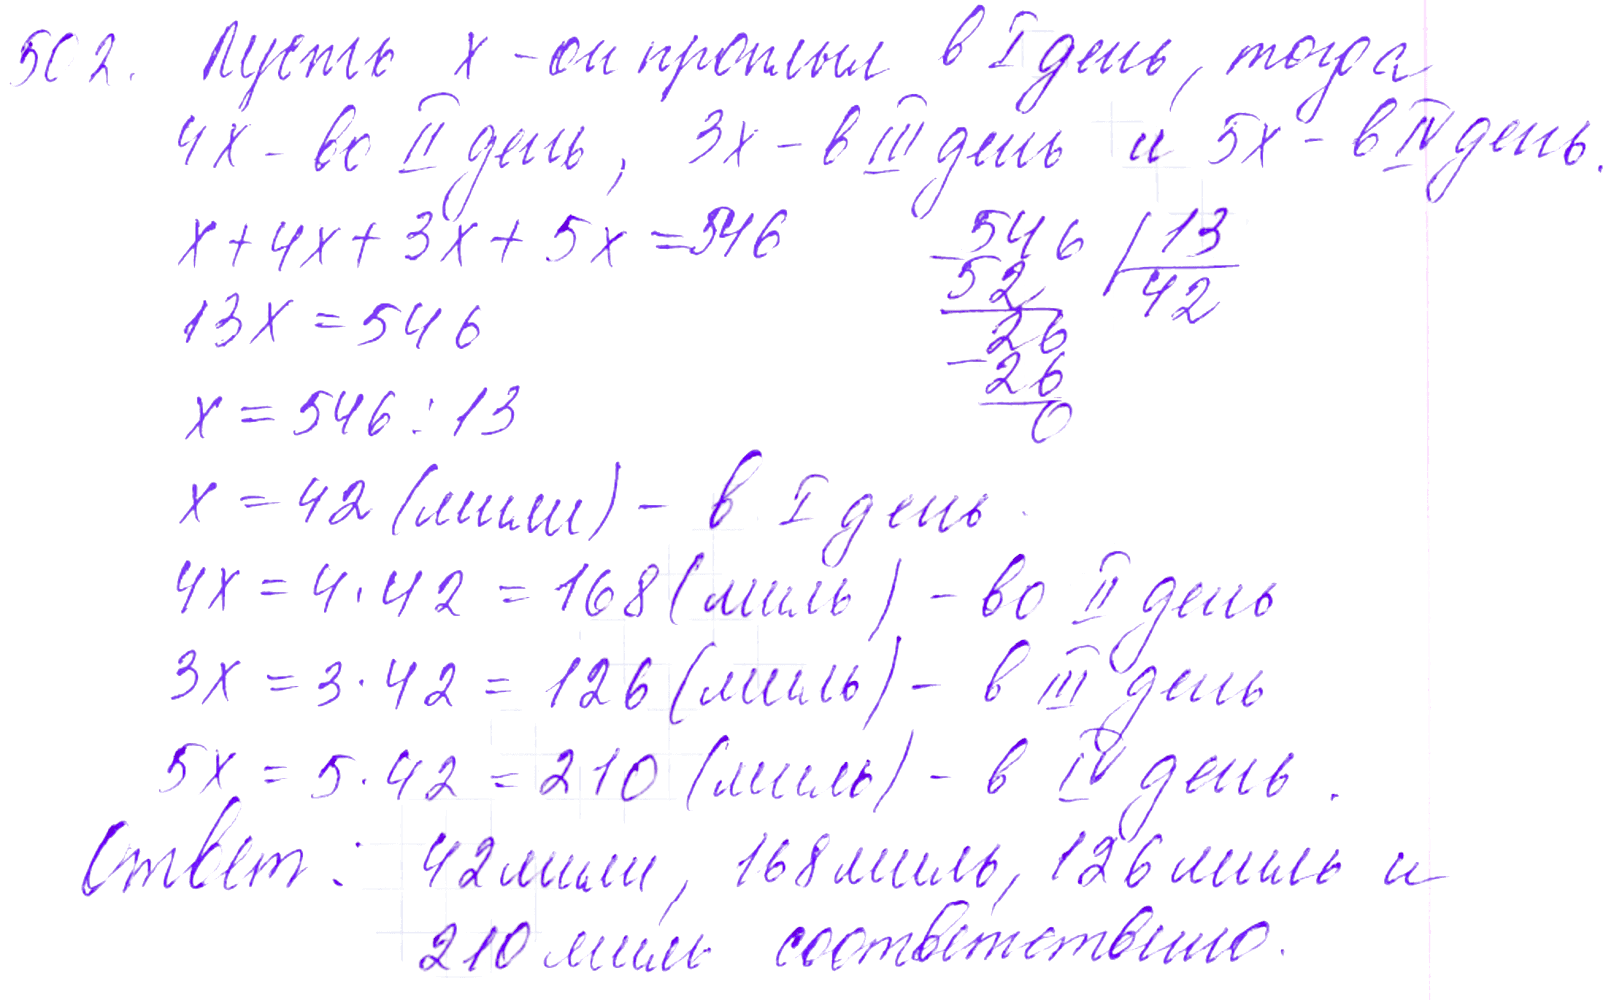 502. Пусть x - он проплыл в I день, тогда
4x - во II день, 3x - в III день и 5x - в IV день.
x + 4x + 3x + 5x = 546
13x = 546
x = 546 : 13
x = 42 (мили) - в I день.
4x = 4 · 42 = 168 (миль) - во II день
3x = 3 · 42 = 126 (миль) - в III день
5x = 5 · 42 = 210 (миль) - в IV день.
Ответ: 42 мили, 168 миль, 126 миль и
210 миль соответственно.
- 546 | 13
52 42
26
- 26
0